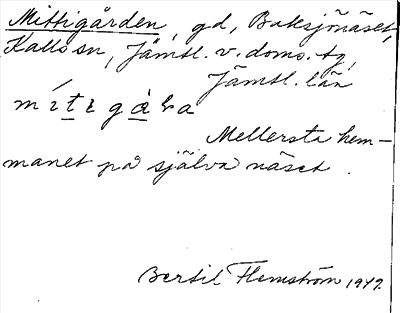 Mittigården, gd, Baksjönäset,
Kalls sn, Jämtl. v. doms. tg,
Jämtl. län
Mellersta hem-
manet på själva näset.
Bertil Flemström 1947.